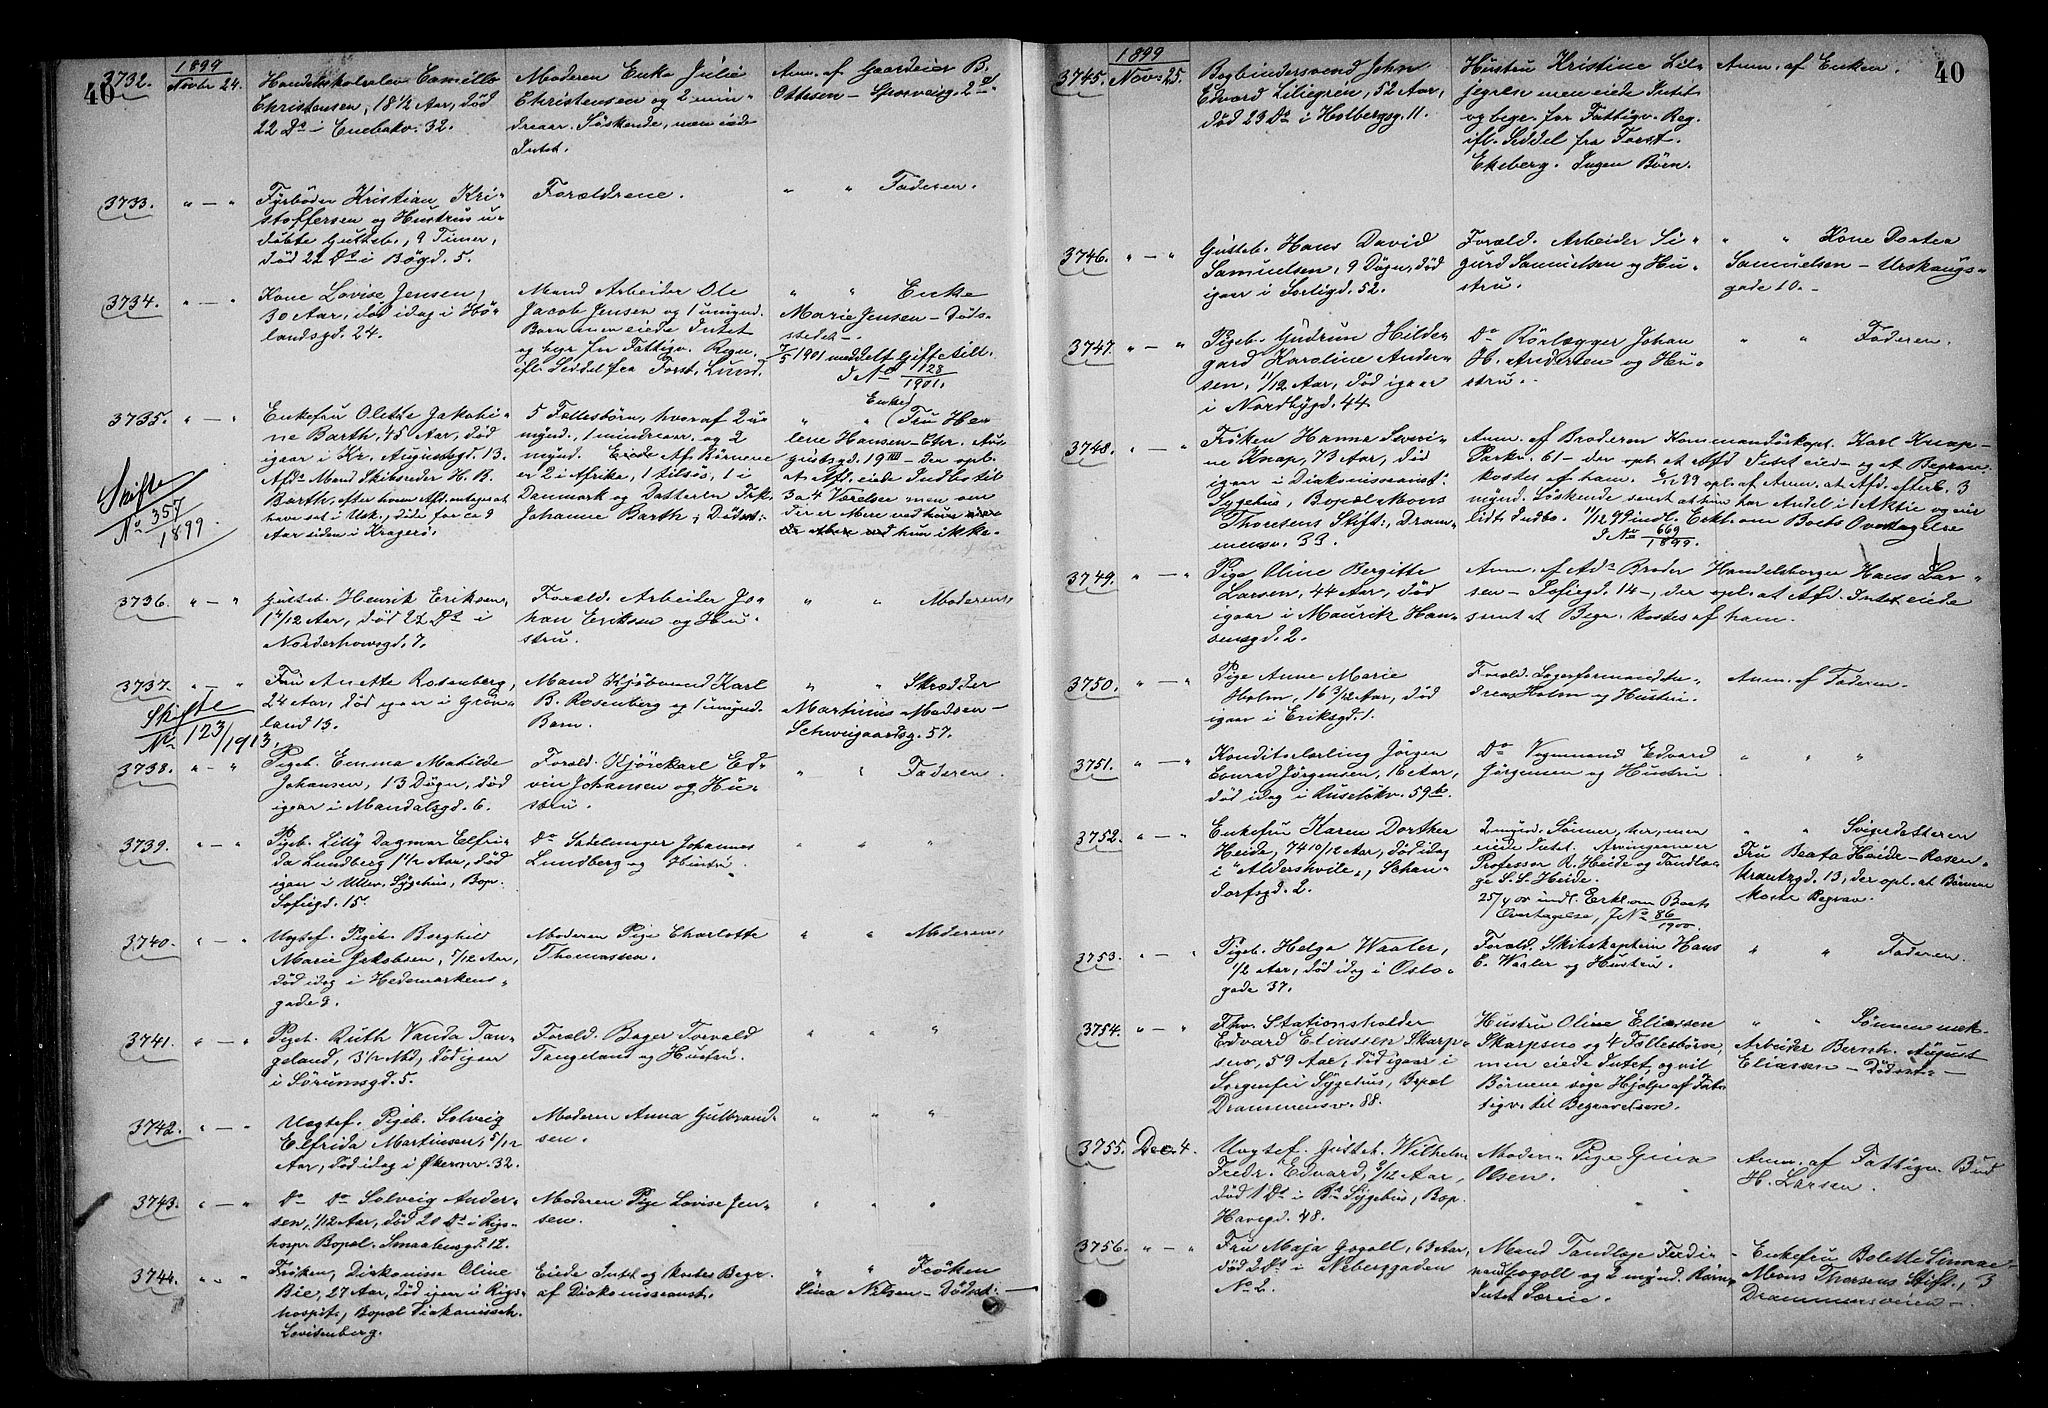 40
1899
3732. Novbr 24.
Handelsskoleelev Camillo
Christensen, 18 1/2 Aar, død
22 Ds i Enebakv. 32.
Moderen Enke Julie
Christensen og 2 min-
dreaar. Söskende, men eiede
Intet.
Anm. af Gaardeier B.
Ottesen - Sporveisg. 2
3733. " - "
Fyrböder Kristian Kri-
stoffersen og Hustrus u-
döbte Gutteb., 9 Timer,
död 22 Ds i Bögd. 5.
Forældrene.
" " Faderen.
3734. " - "
Kone Lovise Jensen,
30 Aar, död idag i Hö-
landsgd. 24.
Mand Arbeider Ole
Jacob Jensen og 1 umynd.
Barn men eiede Intet
og begr. for Fattigv. Regn.
ifl. Seddel fra Forst. Lund.
" " Enke
Marie Jensen - Döds-
stedet. -
7/5 1901 meddelt Gifte till.
J No 123/1901.
3735. " - "
Enkefru Olette Jakobi-
ne Barth, 45 Aar, död
igaar i Kr. Augustsgd. 13.
Afds Mand Skibsreder H. B.
Barth, efter hvem Afd. antages at
have set i Usk., döde for ca 9
Aar siden i Kragerö.
5 Fællesbörn, hvoraf 2 u-
mynd., 1 mindreaar. og 2
mynd. Af Börnene
er 2 i Afrika, 1 tilsös, 1 i
Danmark og Datteren Frk.
Johanne Barth i Dödsst:
Enke
" " (Fru He-
lene Hansen - Chr. Au-
gustsgd. 19 III - der opl.
at Afd. eiede Indbo til
3 a 4 Værelser men om
der er Mere ved hun
hun ikke.
Skifte
No 357
1899.
3736. " - "
Gutteb. Henrik Eriksen,
1 4/12 Aar, död 22 Ds i
Norderhovsgd. 7.
Foræld. Arbeider Jo-
han Eriksen og Hu-
stru.
" " Moderen.
3737. " - "
Fru Anette Rosenberg,
24 Aar, död igaar i Grön-
land 13.
Mand Kjöbmand Karl
B. Rosenberg og 1 umynd.
Barn.
" " Skrædder
Martinius Madsen -
Schweigaardsg. 57.
Skifte
No 123/1913.
3738. " - "
Pigeb. Emma Matilde
Johansen, 13 Dögn, död
igaar i Mandalsgd. 6.
Foræld. Kjörekarl Ed-
vin Johansen og Hu-
stru.
" " Faderen.
3739. " - "
Pigeb. Lilly Dagmar Elfri-
da Lundberg 1 1/2 Aar, död
igaar i Ullev. Sygehus, Bop.
Sofiegd. 15.
Do Sadelmager Johannes
Lundberg og Hustru.
" " "
3740. " - "
Uegtef. Pigeb. Borghil
Marie Jakobsen, 7/12 Aar,
död idag i Hedemarkens-
gade 9.
Moderen Pige Charlotte
Thomassen.
" " Moderen.
3741. " - "
Pigeb. Ruth Vanda Tan-
geland, 3 1/2 Md, död igaar
i Sörumsgd. 5.
Foræld. Bager Torvald
Tangeland og Hustru.
" " "
3742. " - "
Uegtef. Pigeb. Solveig
Elfrida Martinsen, 5/12
Aar, död idag i Økernv. 32.
Moderen Anna Gulbrand-
sen.
" " "
3743. " - "
Do Do Solveig Ander-
sen, 1/12 Aar, död 20 Ds i Rigs-
hospt. Bopæl. Smaalensgd. 12.
Moderen Pige Lovise Jen-
sen.
" " "
3744. " - "
Fröken, Diakonisse Oline
Bie, 27 Aar, död igaar i Rigs-
hospit., Bopæl Diakonissh.
Lovisenberg.
Eiede Intet og kostes Begr.
af Diakonisseanst.
" " Fröken
Lina Nielsen - Dödsst: -
40
1899
3745. Nov. 25.
Bogbindersvend John
Edvard Liliegren, 52 Aar,
död 23 Ds i Holbergsg. 11.
Hustru Kristine Lil-
jegren men eiede Intet
og begr. for Fattigv. Reg.
ifl. Seddel fra Forst.
Ekeberg. Ingen Börn.
Anm. af Enken.
3746. " - "
Gutteb. Hans David
Samuelsen, 9 Dögn, död
igaar i Sorligd. 52.
Foræld. Arbeider Si-
gurd Samuelsen og Hu-
stru.
" " Kone Dortea
Samuelsen - Urskougs-
gade 10. -
3747. " - "
Pigeb. Gudrun Hilde-
gard Karoline Ander-
sen, 11/12 Aar, död igaar
i Nordbygd. 44.
Do Rörlægger Johan
H. Andersen og Hu-
stru.
" " Faderen.
3748. " - "
Fröken Hanna Severi-
ne Knap, 73 Aar, död
igaar i Diakonisseanst:
Sygehus, Bopæl Mons
Thoresens Stift:, Dram-
mensv. 33.
Anm. af Broderen Kommandörkapt. Karl Knap -
Parkv. 61 - der opl. at Afd Intet eied - og at Begrav.
kostes af ham. 6/12 99 opl. af Anm. at Afd. efterl. 3
mynd. Söskende samt at hun har Andel i 1 Aktie og eier
lidt Indbo. 11/12 99 indl. Erkl. om Boets Overtagelse
J No 669/1899.
3749. " - "
Pige Oline Bergitte
Larsen, 44 Aar, död
igaar i Maurits Han-
sensgd. 2.
Anm. af Afds Broder Handelsborger Hans Lar-
sen - Sofiegd. 14 -, der opl. at Afd. Intet eiede
samt at Begr. kostes af ham.
3750. " - "
Pige Anne Marie
Holm, 16 3/12 Aar, död
igaar i Eriksgd. 1.
Foræld. Lagerformand
Holm og Hustru.
Anm. af Faderen.
3751. " - "
Konditorlærling Jörgen
Konrad Jörgensen, 16 Aar,
död idag i Ruselökv. 59 b.
Do Vognmand Edvard
Jörgensen og Hustru.
" " "
3752. " - "
Enkefru Karen Dorthea
Heide, 74 10/12 Aar, död idag
i "Aldershvile", Schan-
dorfsgd. 2.
2 mynd. Sönner, her, men
eiede Intet. Arvingerne er
Professor R. Heide og Tandlæ-
ge S. S. Heide.
25/4 00 indl. Erkl. om Boets
Overtagelse, J No 86/1900.
" " Svigerdatteren
Fru Beata Heide - Rosen-
krantzgd. 13, der opl. at Börnene
koste Begrav.
3753. " - "
Pigeb. Helga Waaler,
1/2 Aar, död idag i Oslo-
gade 37.
Foræld. Skibskaptein Hans
E. Waaler og Hustru.
" " Faderen.
3754. " - "
Fhv. Stationsholder
Edvard Eliassen Skarps-
sno, 59 Aar, död igaar i
Sorgenfri Sygehus, Bopæl
Drammensv. 88.
Hustru Oline Eliassen
Skarpsno og 4 Fællesbörn,
men eiede Intet og vil
Börnene söge Hjælp af Fat-
tigv. til Begravelsen.
" " Sönnen mek.
Arbeider Bernh. August
Eliassen - Dödsst: -
3755. Dec. 4.
Uegtef. Gutteb. Wilhelm
Fredr. Edvard, 9/12 Aar,
död 1 Ds i Bs Sygehus, Bop.
Havegd. 48.
Moder. Pige Gina
Olsen.
Anm. af Fattigv. Bud
H. Larsen.
3756. " - "
Fru Maja Gogoll, 63 Aar,
död 2 Ds i Neberggaden
No 2.
Mand Tandlæge Ferdi-
nand Gogoll og 2 mynd. Börn.
Intet Særeie.
Enkefru Bolette Simae-
Mons Thorsens Stift., 3
Drammensveien -.